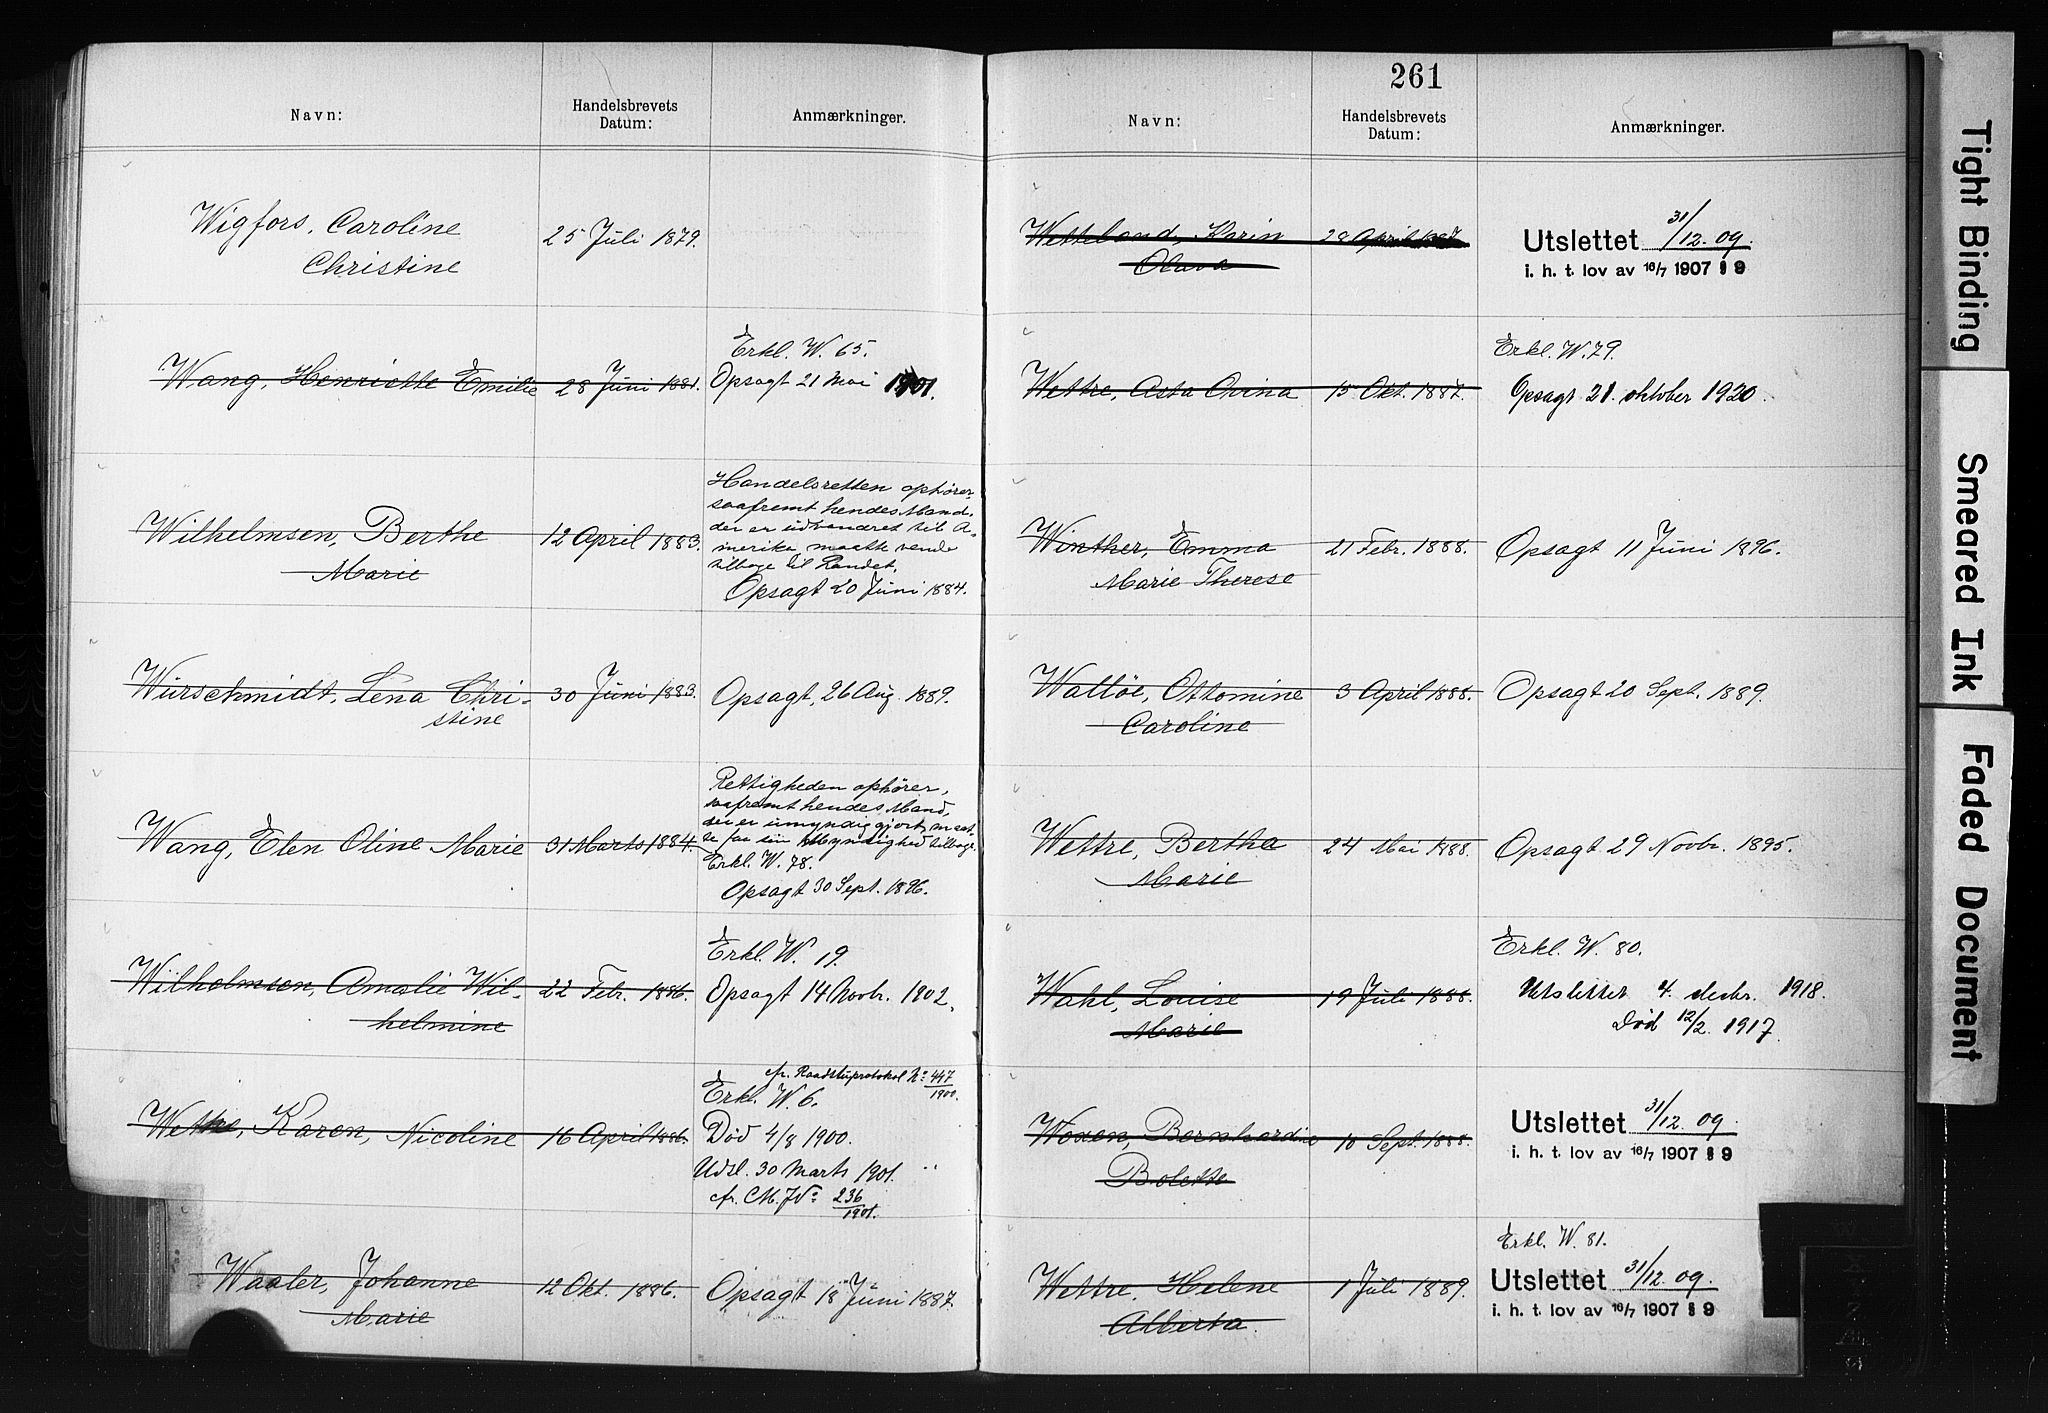 Navn:
Handelsbrevets
Datum:
Anmærkninger.
Wigfors, Caroline
Christine
25 Juli 1879.
Wang, Henriette Emilie
28 Juni 1881.
Erkl. W. 65.
Opsagt 21 Mai 1901.
Wilhelmsen, Berthe
Marie
12 April 1883.
Handelsretten ophører
saafremt hendes Mand,
der er udvandret til A-
merika maatte vende
tilbage til Landet.
Opsagt 20 Juni 1884.
Würschmidt, Lena Chri-
stine
30 Juni 1883.
Opsagt, 26 Aug. 1889.
Wang, Elen Oline Marie
31 Marts 1884.
Rettigheden ophører,
saafremt hendes Mand,
der er umyndiggjort, maat-
te faa sin Myndighed tilbage.
Erkl. W. 78.
Opsagt 30 Sept. 1896.
Wilhelmsen, Amalie Wil-
helmine
22 Febr. 1886.
Erkl. W. 19.
Opsagt 14 Novbr. 1902.
Karen, Nicoline
16 April 1886.
cfr. Raadstuprotokol No 447/1900.
Erkl. W. 6.
Død 4/8 1900.
Udsl. 30 Marts 1901.
cfr. M. J. No 236/1901.
Waaler, Johanne
Marie
12 Okt. 1886.
Opsagt 18 Juni 1887.
261
Navn:
Handelsbrevets
Datum:
Anmærkninger.
Wetteland, Karin
Olava
28 April 1887
Utslettet 31/12.09.
i. h. t. lov av 16/7 1907 § 9
Wettre, Asta Ovina
15 Okt. 1887.
Erkl. W. 79.
Opsagt 21. oktober 1920.
Winther, Emma
Marie Therese
21 Febr. 1888.
Opsagt 11 Juni 1896.
Walløe, Ottomine
Caroline
3 April 1888.
Opsagt 20 Sept. 1889.
Wettre, Berthe
Marie
24 Mai 1888.
Opsagt 29 Novbr. 1895.
Wahl, Louise
Marie
19 Juli 1888.
Erkl. W. 80.
Utslettet 4. decbr. 1918.
Død 12/2. 1917.
Woxen, Bernhardine
Bolette
10 Sept. 1888.
Utslettet 31/12.09.
i. h. t. lov av 16/7 1907 § 9
Wettre, Helene
Alberta.
1 Juli 1889.
Erkl. W. 81.
Utslettet 31/12.09.
i. h. t. lov av 16/7 1907 § 9
Tight Binding
Smeared Ink
Faded Document